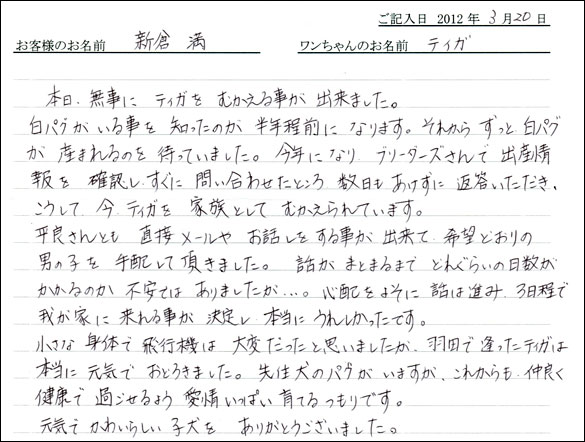 ご記入日 2012 年 3 月 20 日
お客様のお名前 新倉 満 ワンちゃんのお名前 ティガ
本日、無事に ティガを むかえる事が 出来ました。
白パグが いる事を 知ったのが 半年程前に なります。それから ずっと 白パグ
が 産まれるのを 待っていました。今年になり ブリーダーズさんで 出産情
報を 確認し すぐに 問い合わせたところ 数日も あけずに 返答いただき、
こうして 今 ティガを 家族として むかえられています。
平良さんとも 直接 メールや お話しを する事が 出来て 希望どおりの
男の子を 手配して 頂きました。 話が まとまるまで どれぐらいの日数が
かかるのか 不安では ありましたが…。心配を よそに 話は進み 3日程で
我が家に 来れる事が 決定し 本当に うれしかったです。
小さな 身体で 飛行機は 大変だったと思いましたが、羽田で 逢ったティガは
本当に 元気で おどろきました。先住犬のパグが いますが、これからも 仲良く
健康で 過ごせるよう 愛情いっぱい 育てる つもりです。
元気で かわいらしい 子犬を ありがとうございました。